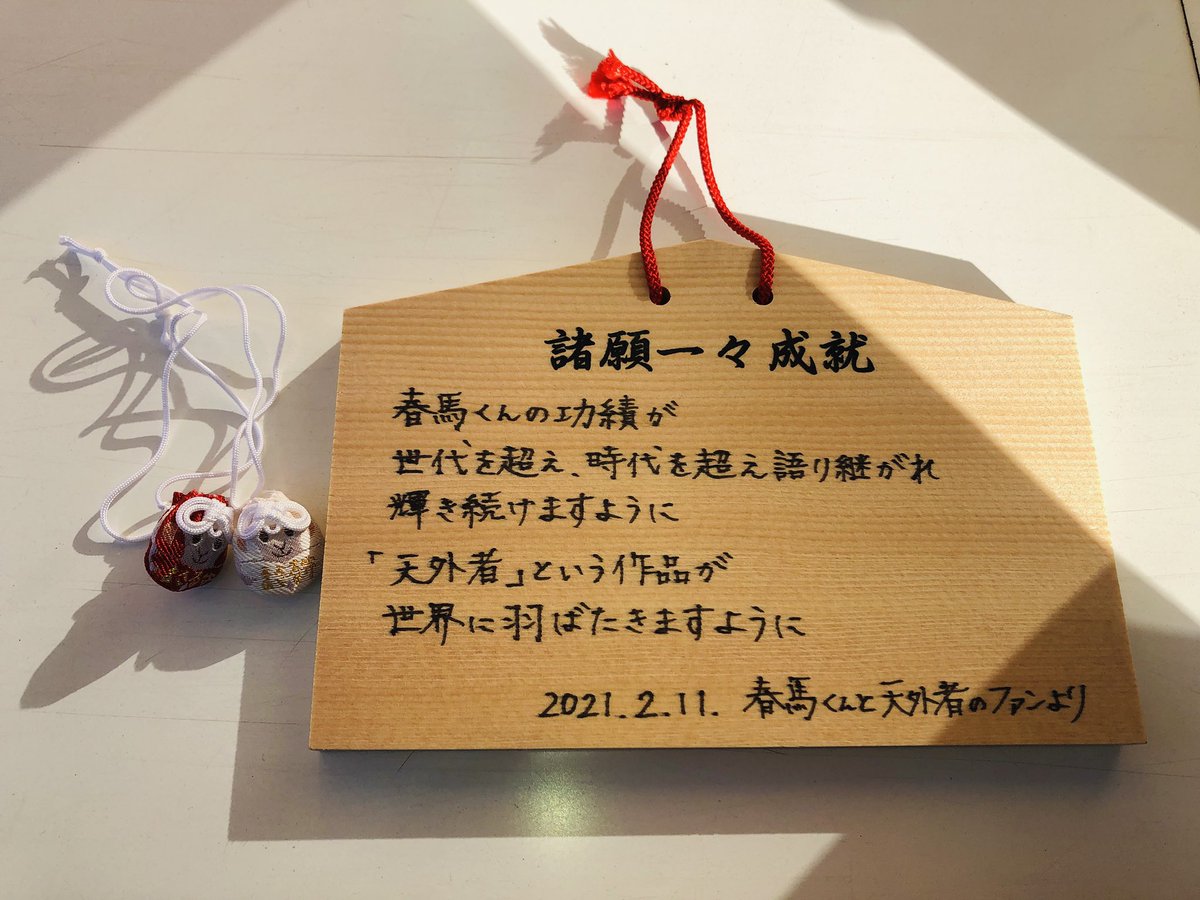 諸願一々成就
春馬くんの功績が
世代を超え、時代を超え語り継がれ
輝き続けますように
「天外者」という作品が
世界に羽ばたきますように
2021.2.11. 春馬くんと天外者のファンより